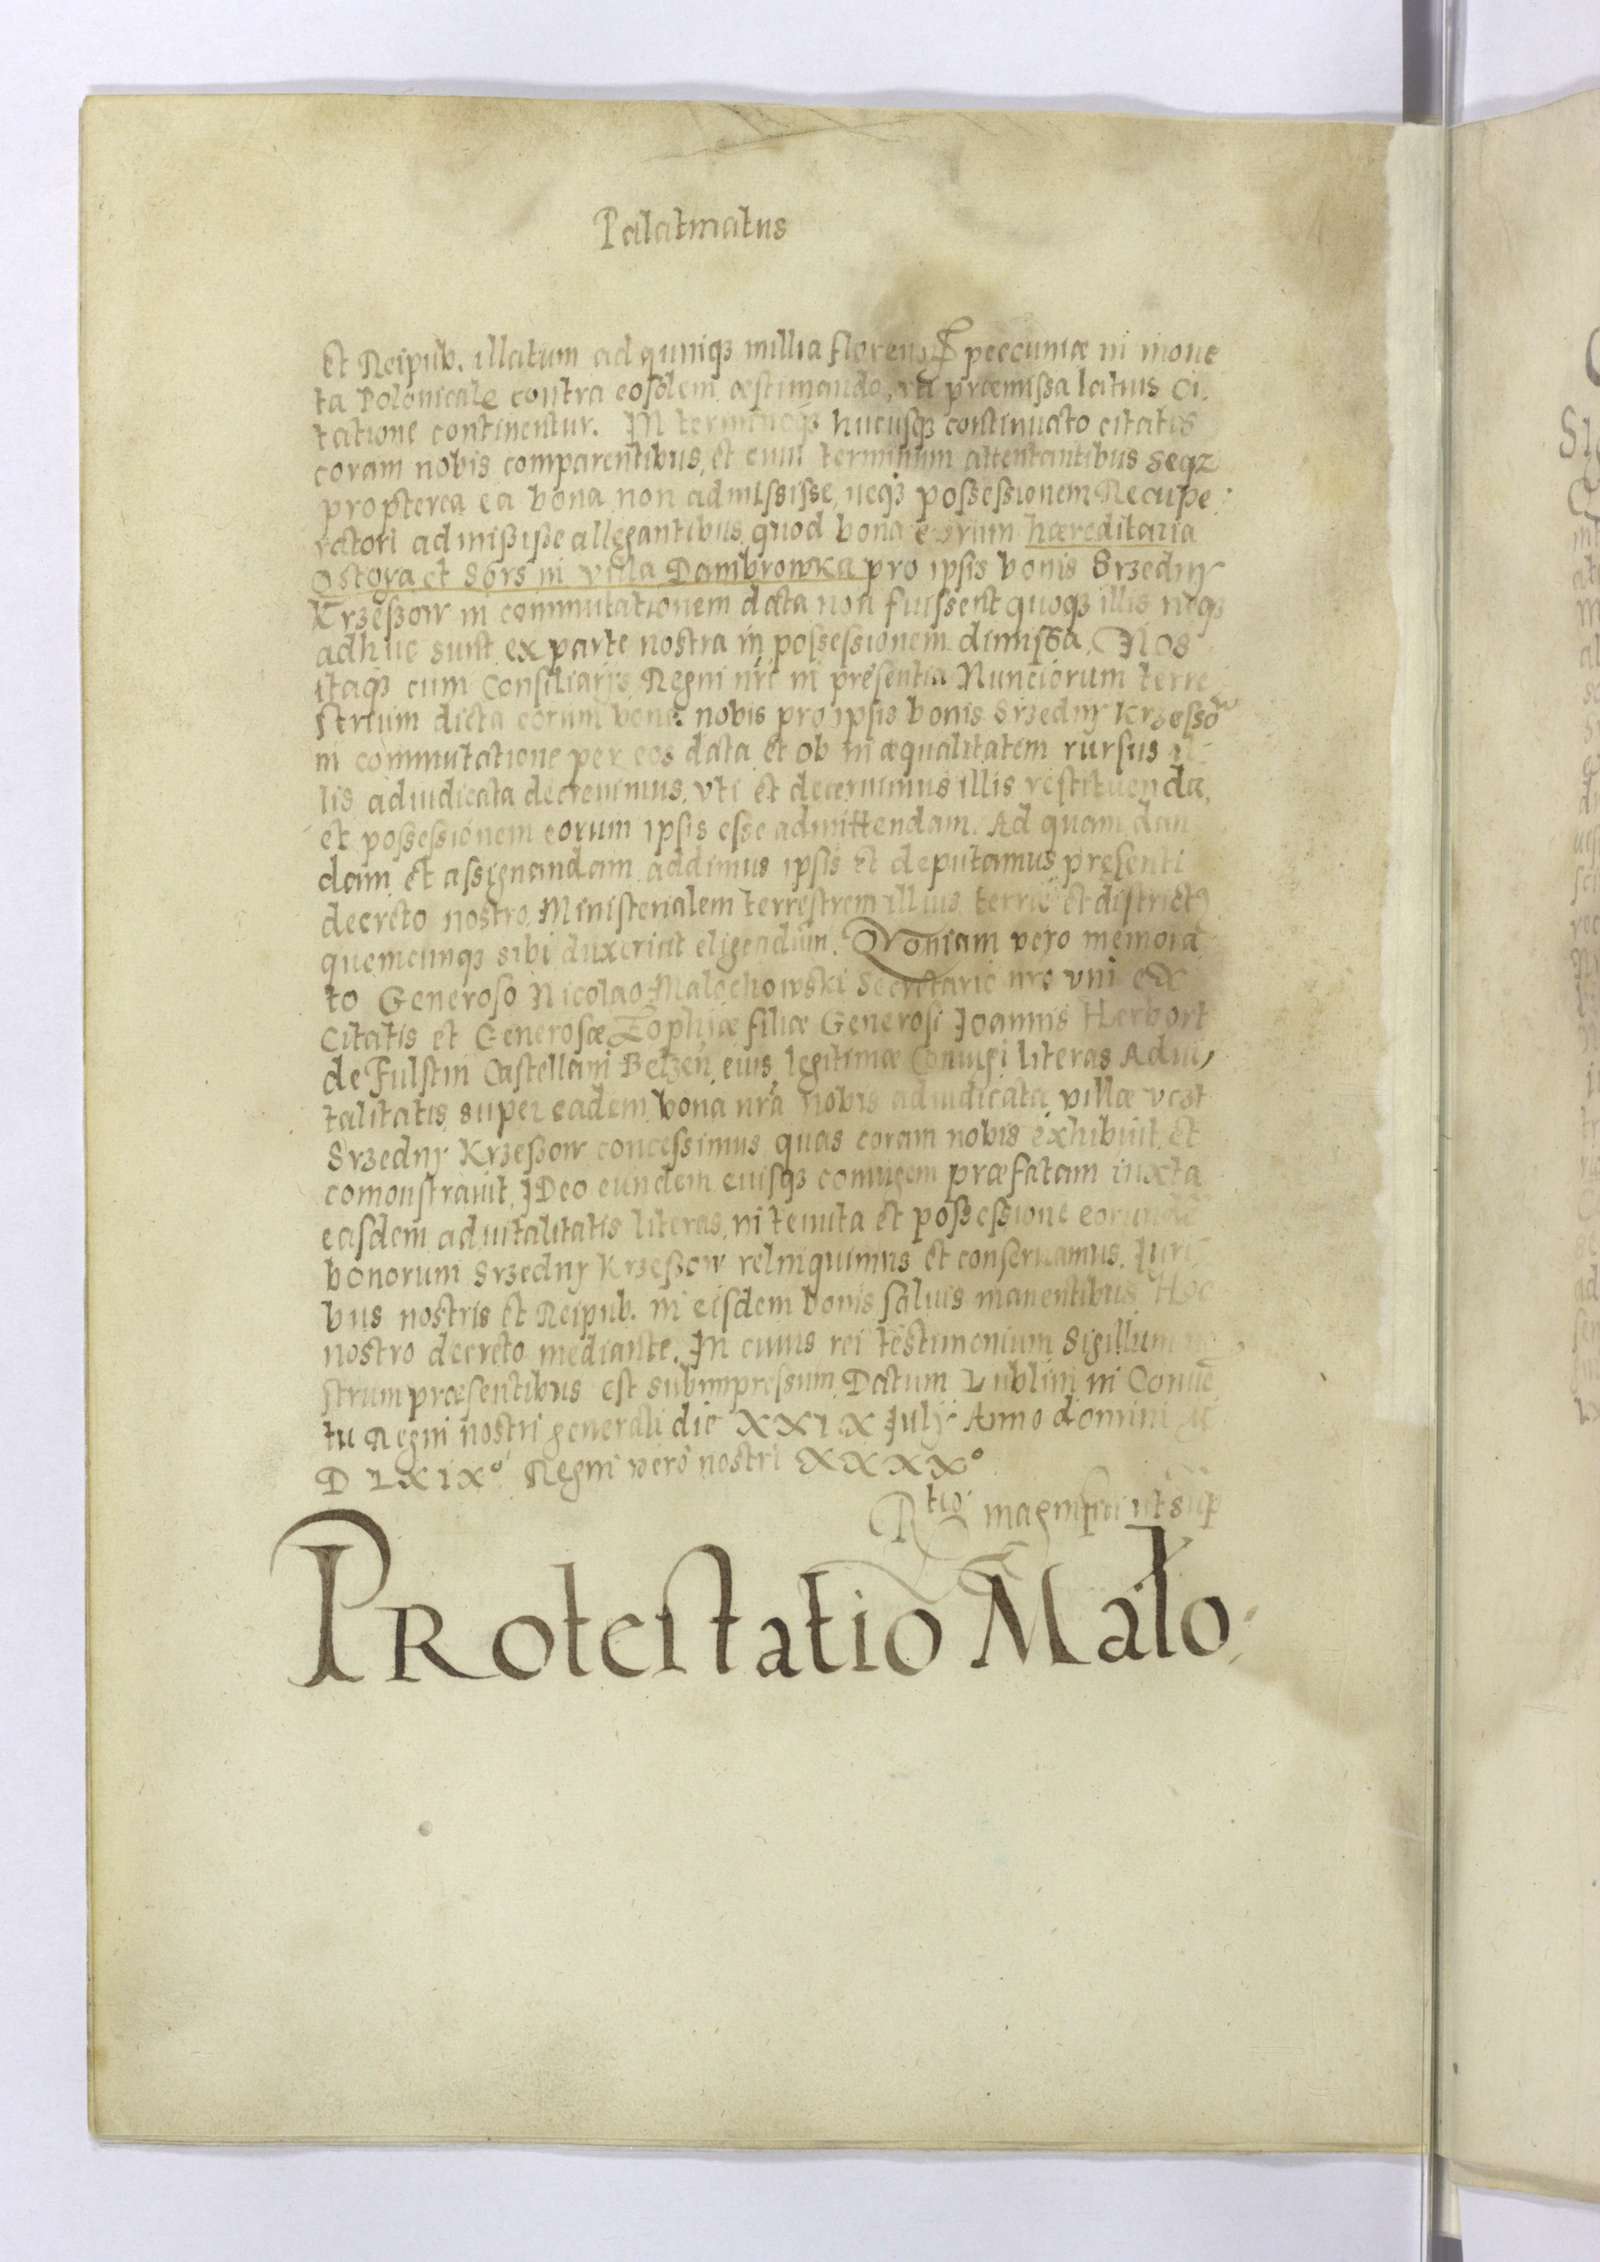 Palatinatus
Et Reipub. illatum ad quinqꝫ millia floren. peccuniæ in mone
ta Polonicale contra eosdem æstimando, præmissa latius Ci,
tatione continentur. In terminoqꝫ hucusqꝫ continuato citatis
coram nobis comparentibus, et eum terminum attentantibus seqꝫ
propterea ea bona non admississe, neqꝫ possessionem Recupe:
ratori admißiße allegantibus, quod bona eorum hæreditaria
Ostoya et Sors in villa Dambrowka pro ipsis bonis Srzedny
Krzeßow in commutationem data non fuissent quoqꝫ illis neqꝫ
adhuc sunt ex parte nostra in possessionem dimissa, Nos
itaqꝫ cum Consiliarijs Regni nri in presentia Nunciorum terre
strium dicta eorum bona nobis pro ipsis bonis Srzedny Krzesso
in commutatione per eos data et ob in æqualitatem rursus il
lis adiudicata decreuimus, vti et decernimus illis restituenda,
et possessionem eorum ipsis esse admittendam. Ad quam dan
dam et assignandam addimus ipsis et deputamus presenti
decreto nostro Ministerialem terrestrem illius terræ et districtꝰ
quemcunqꝫ sibi duxerint eligendum. Qvoniam vero memora
to Generoso Nicolao Malochowski Secretario nro vni ex
Citatis et Generosæ Zophiæ filiæ Generosi Joannis Herbort
de Fulstin Castellani Belzen, eius legitimæ Coniugi literas Adui,
talitatis super eadem bona nra nobis adiudicata villæ vezt
Srzedny Krzeßow concessimus, quas coram nobis exhibuit, et
comonstrauit, Ideo eundem euisqꝫ coniugem præfatam iuxta
easdem aduitalitatis literas, in tenuta et poßeßione eorunde
bonorum Srzedny Krzeßow relinquimus et conseruamus, Juri
bus nostris et Reipub. in eisdem bonis saluis manentibus Hoc
nostro decreto mediante. In cuius rei testimonium Sigillum no
strum præsentibus est subimpressum. Datum Lublini in Conue
tu Regni nostri generali die XXIX Julij Anno domini M
D LXIXº. Regni vero nostri XXXXº
Rtio magnifici ut sup
PRotestatio Malo: